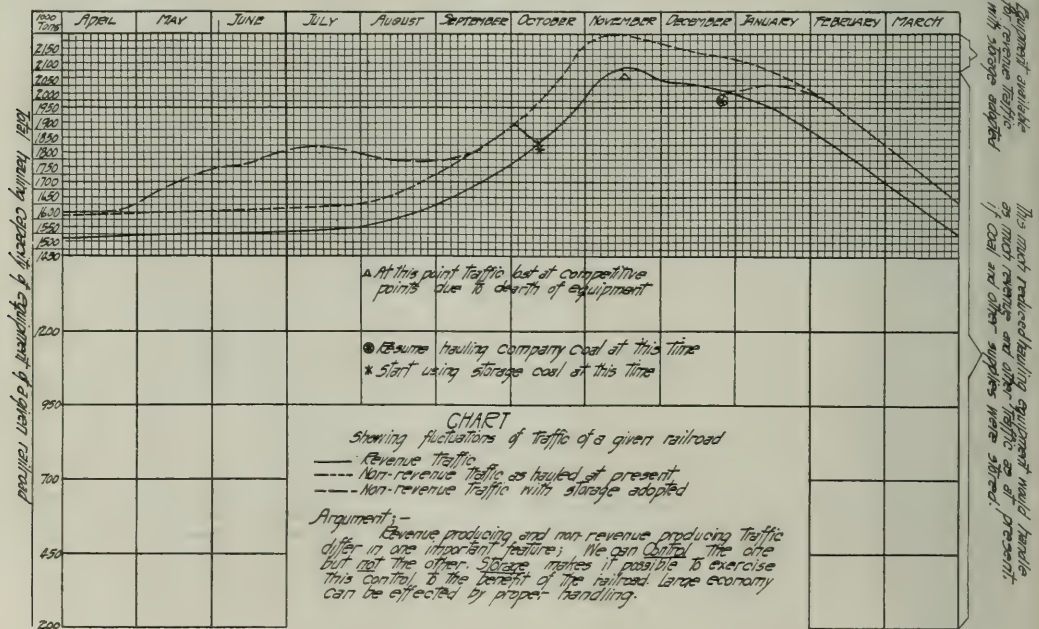 1000 Tons
APRIL MAY JUNE JULY AUGUST SEPTEMBER OCTOBER NOVEMBER DECEMBER JANUARY FEBRUARY MARCH
2150
2100
2050
2000
1950
1900
1850
1800
1750
1700
1650
1600
1550
1500
1450
1200
950
700
450
200
Total hauling capacity of equipment of a given railroad
△ At this point traffic lost at competitive
points due to dearth of equipment
Resume hauling company coal at this time
* Start using storage coal at this time
CHART
Showing fluctuations of traffic of a given railroad
Revenue Traffic
Non-revenue traffic as hauled at present
Non-revenue traffic with storage adopted
Argument;-
Revenue producing and non revenue producing traffic
differ in one important feature; We can Control the one
but not the other. Storage makes it possible to exercise
this control to the benefit of the railroad. Large economy
can be effected by proper handling.
Equipment available
for revenue traffic
with storage adopted
This much reduced hauling equipment would handle
as much revenue and other traffic as at present.
if coal and other supplies were stored.